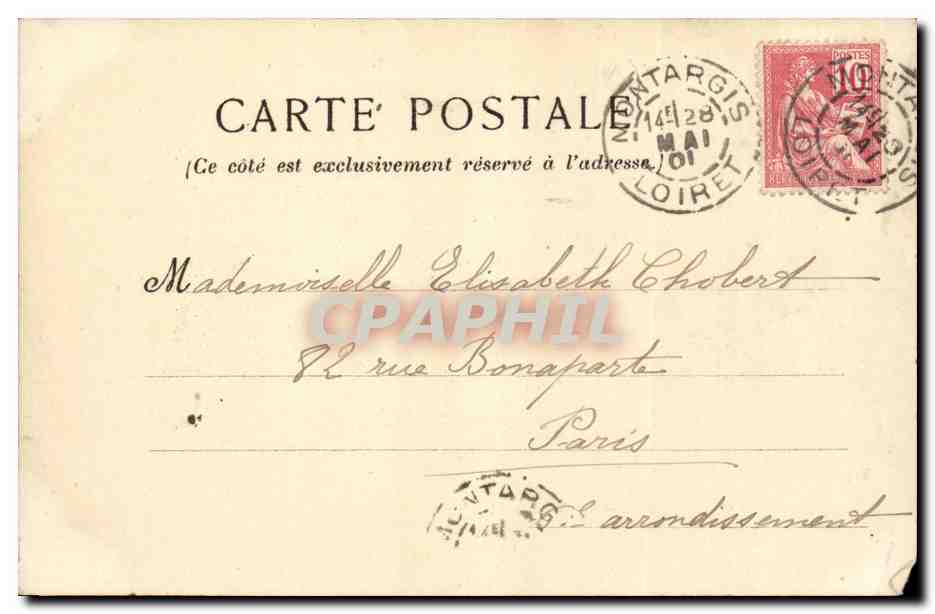 CARTE POSTALE
(Ce côté est exclusivement réservé à l'adresse.)
MONTARGIS
14 28
MAI
01
LOIRET
POSTES
10
MONTARGIS
MAI
LOIRET
Mademoiselle Elisabeth Chobert
CPAPHIL
82 rue Bonaparte
Paris
MONTARG
6e arrondissement